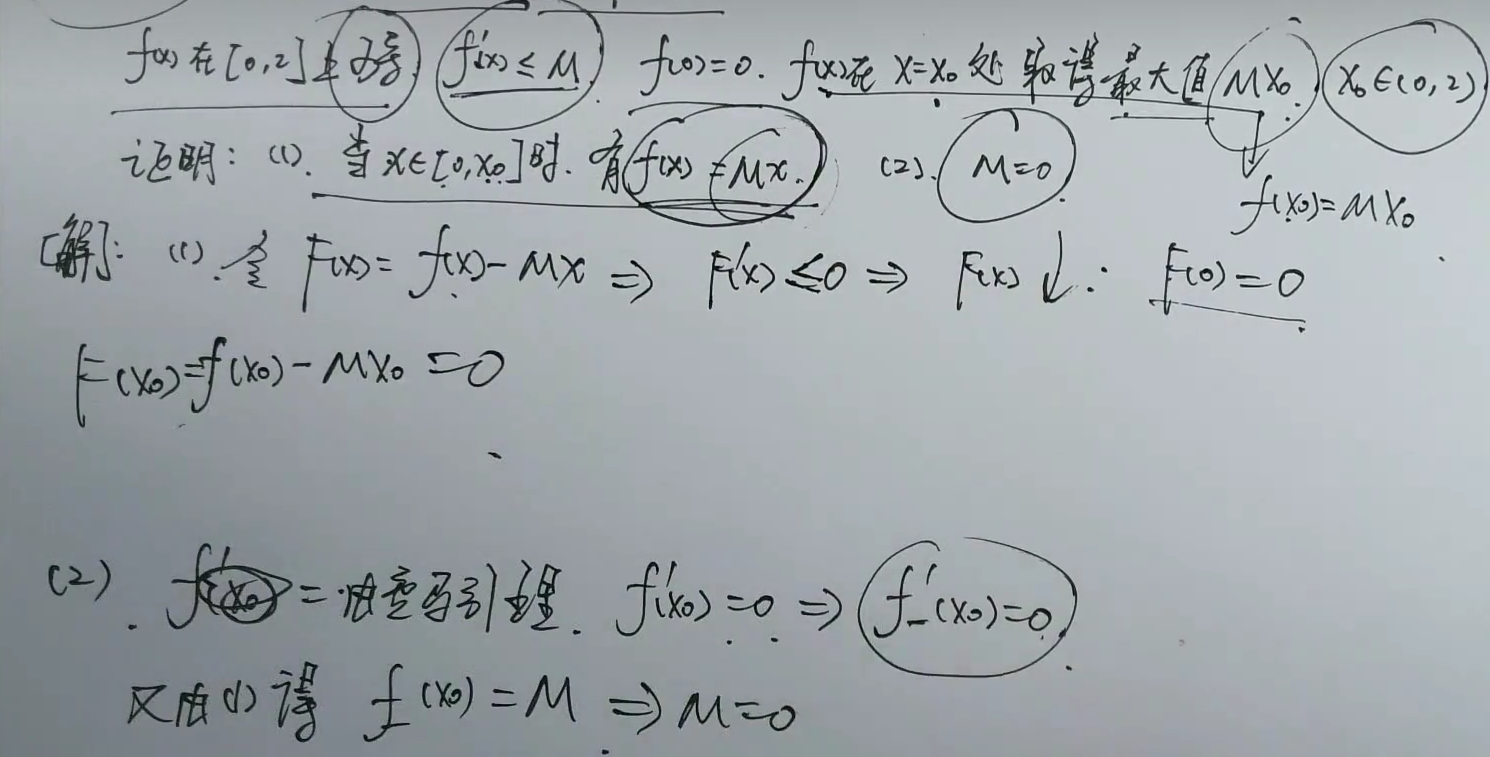 f(x)在[0,2]上可导, f'(x)≤M, f(0)=0. f(x)在 x=x₀ 处取得最大值 Mx₀. x₀∈(0,2)
证明: (1). 当 x∈[0,x₀]时. 有 f(x)=Mx. (2). M=0.
f(x₀)=Mx₀
[解]: (1). 令 F(x)=f(x)-Mx ⇒ F'(x)≤0 ⇒ F(x)↓: F(0)=0
F(x₀)=f(x₀)-Mx₀=0
(2). f'(x₀)=由费马引理. f'(x₀)=0 ⇒ f'₋(x₀)=0.
又由(1)得 f₋(x₀)=M ⇒ M=0